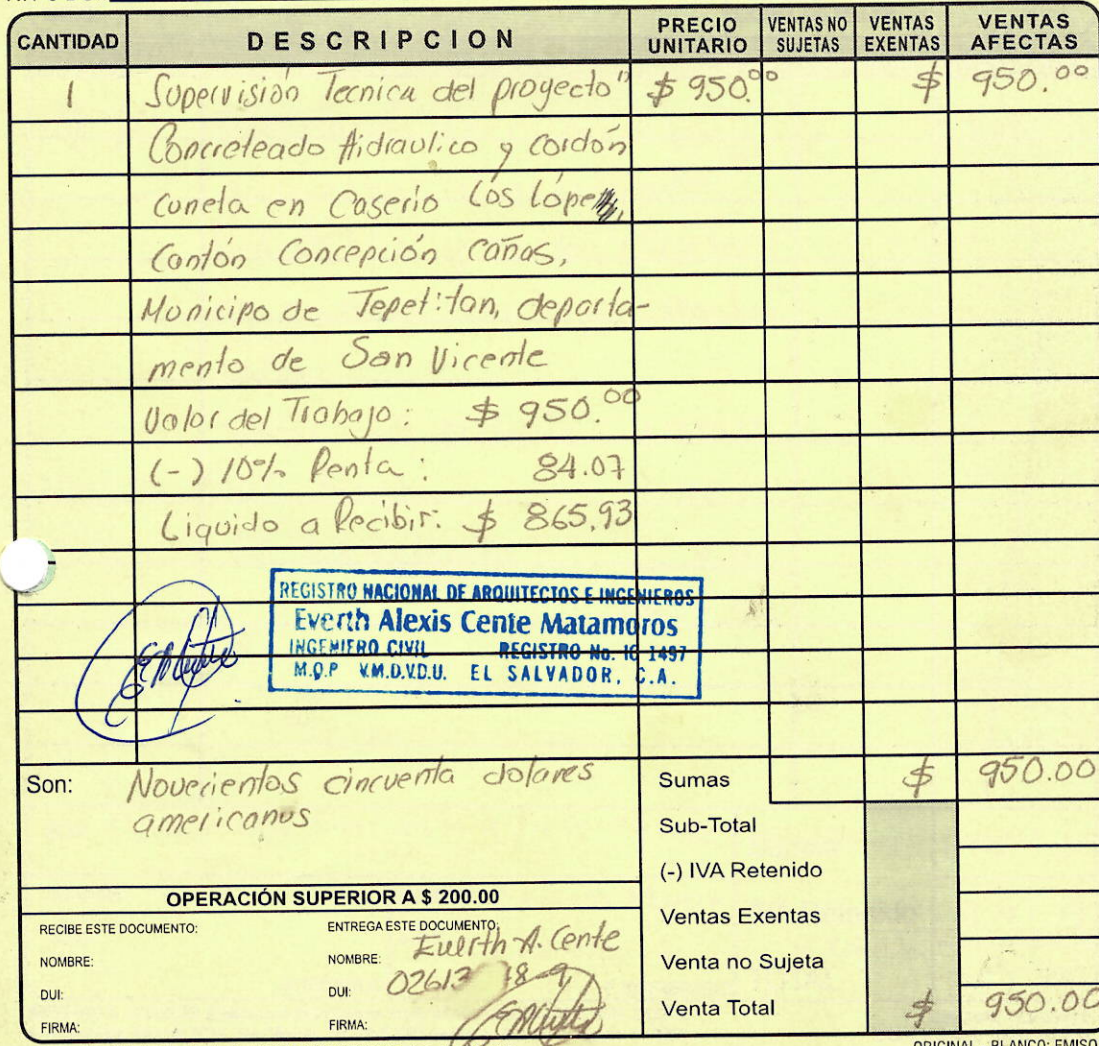 CANTIDAD DESCRIPCION PRECIO UNITARIO VENTAS NO SUJETAS VENTAS EXENTAS VENTAS AFECTAS
1 Supervisión Tecnica del proyecto" $ 950.00 $ 950.00
Concreteado Hidraulico y cordón
cuneta en Caserio Los López,
Cantón Concepción Cañas,
Municipo de Tepetitan, departa-
mento de San Vicente
Valor del Trabajo: $ 950.00
(-) 10% Renta: 84.07
Liquido a Recibir: $ 865.93
REGISTRO NACIONAL DE ARQUITECTOS E INGENIEROS
Everth Alexis Cente Matamoros
INGENIERO CIVIL REGISTRO No. IC 1497
M.O.P V.M.D.V.D.U. EL SALVADOR, C.A.
Son: Novecientos cincuenta dolares
americanos
Sumas $ 950.00
Sub-Total
(-) IVA Retenido
Ventas Exentas
Venta no Sujeta
Venta Total $ 950.00
OPERACIÓN SUPERIOR A $ 200.00
RECIBE ESTE DOCUMENTO: ENTREGA ESTE DOCUMENTO:
NOMBRE: NOMBRE: Everth A. Cente
DUI: DUI: 02613 18-9
FIRMA: FIRMA:
ORIGINAL BLANCO: EMISO